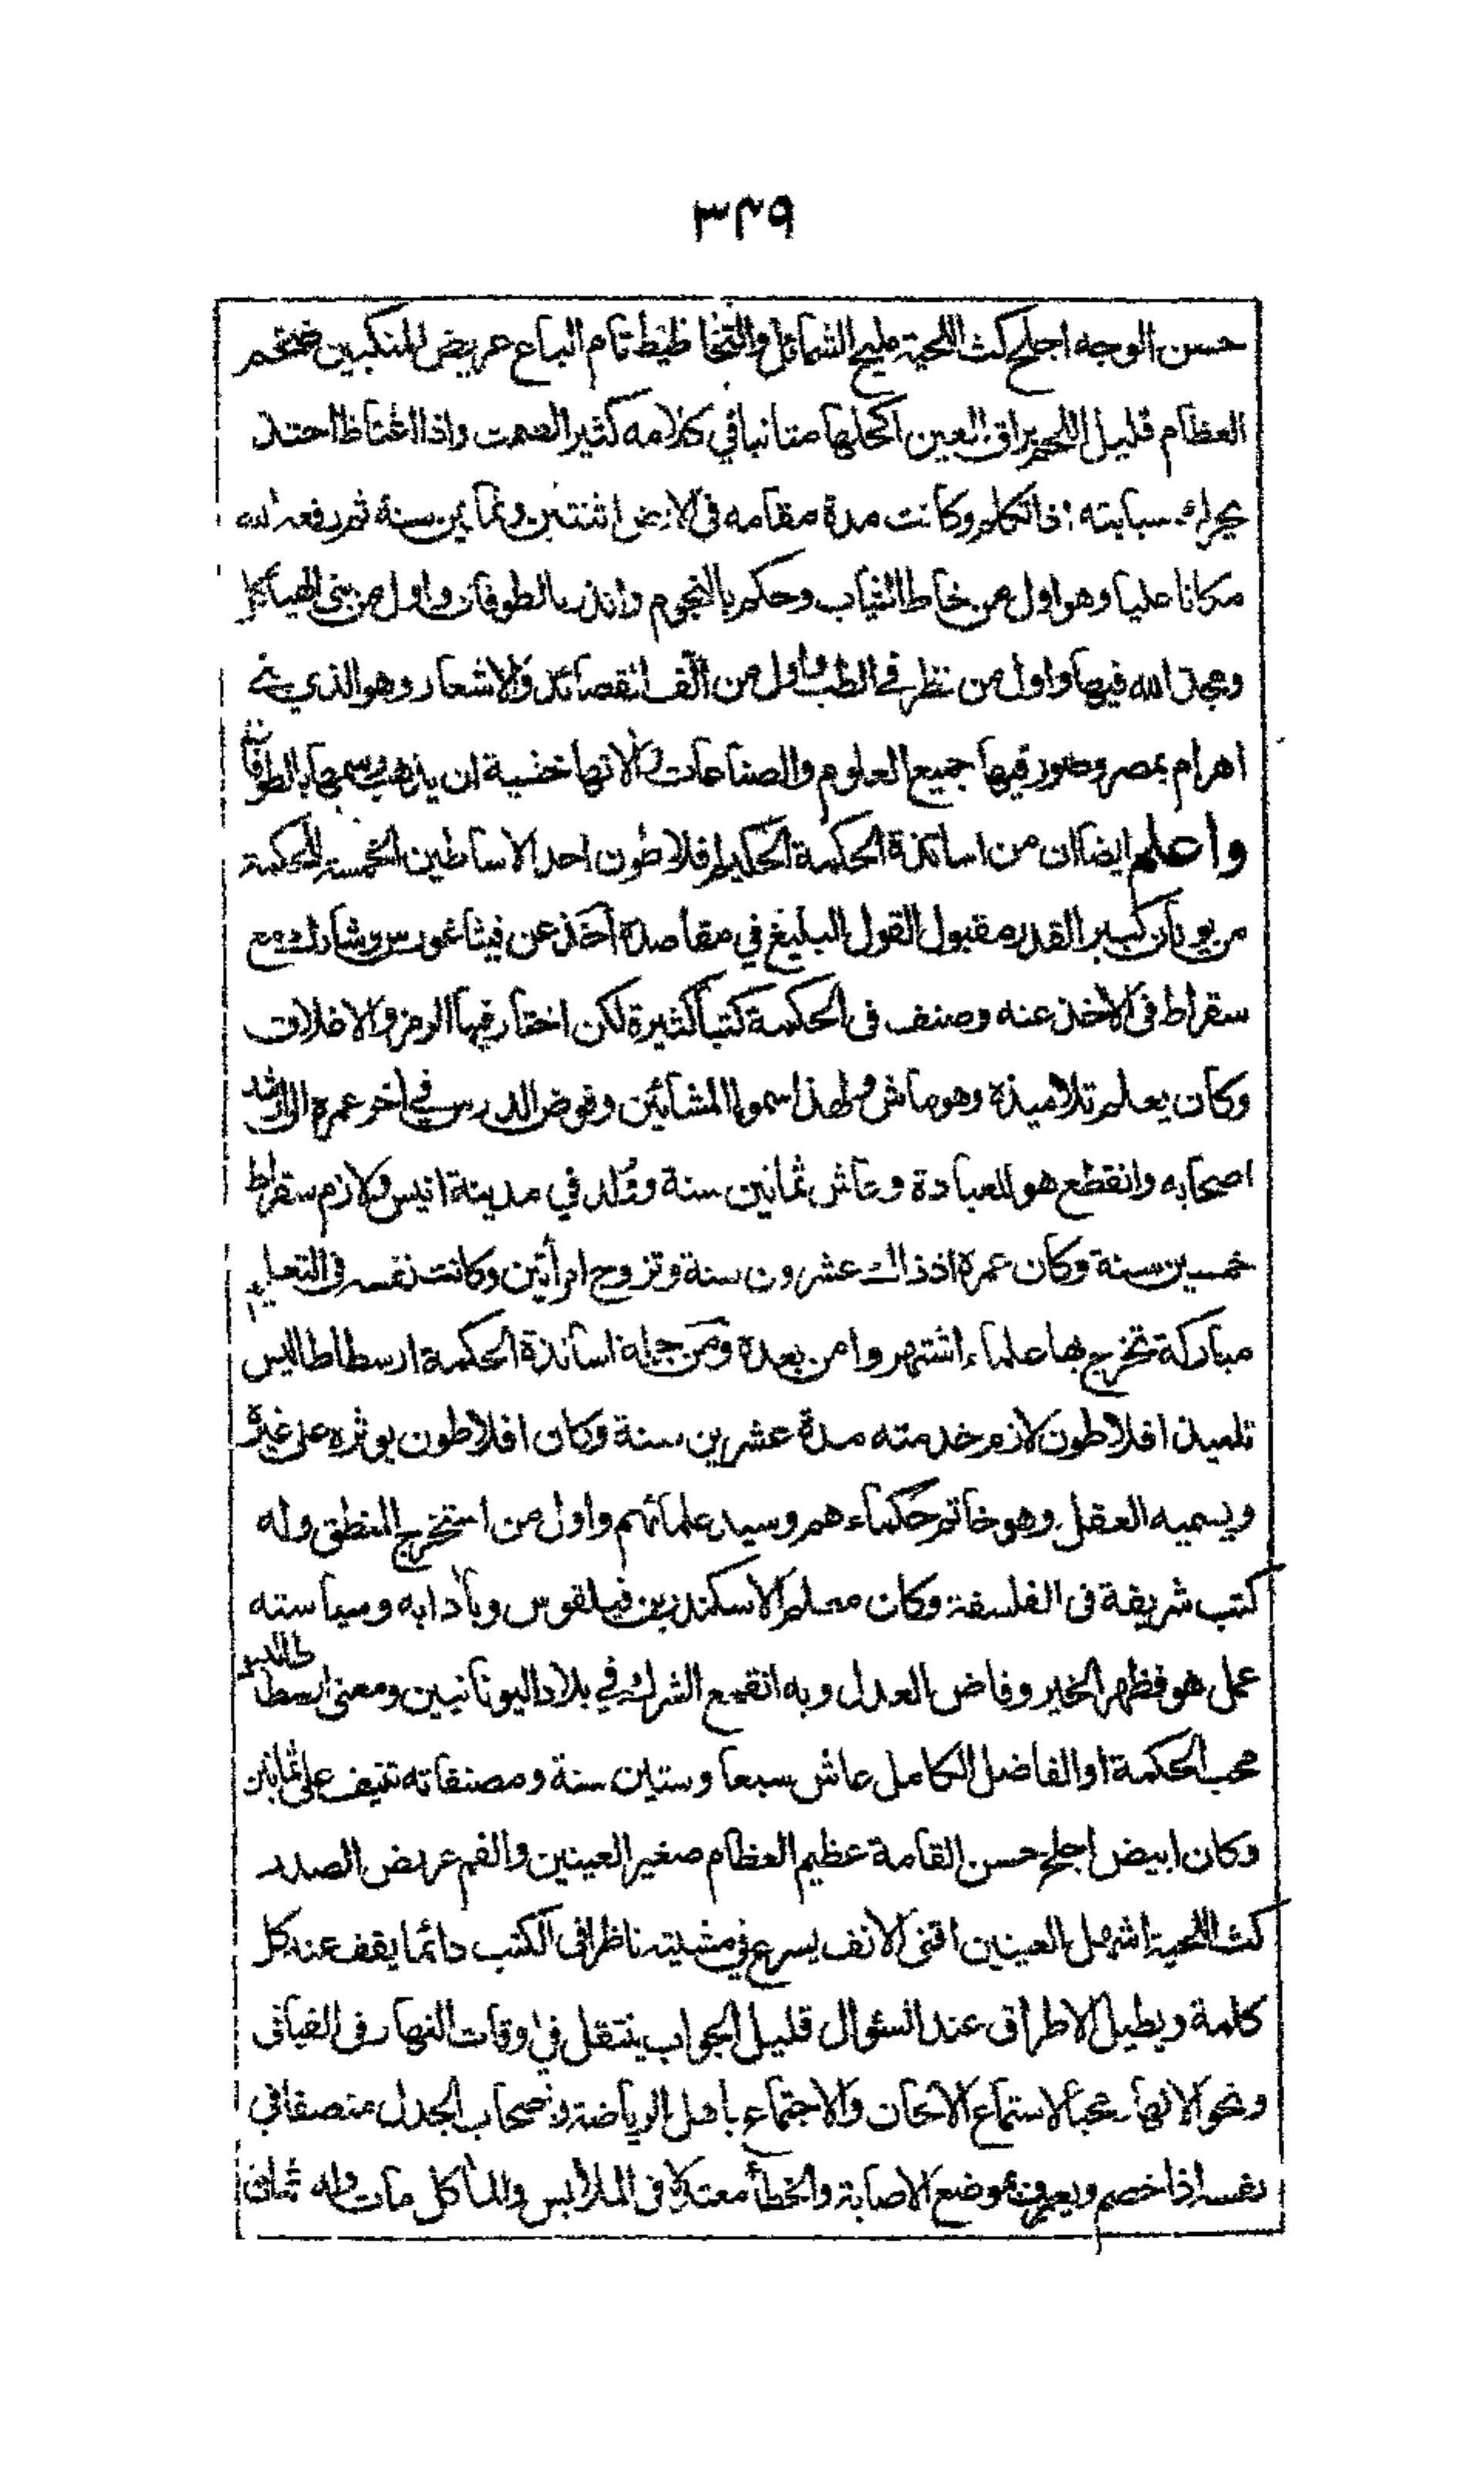 ٣٢٩
حسن الوجه اجلح كث اللحية مليح الشمائل والتخاطيط تام الباع عريض المنكبين ضخم
العظام قليل اللحم براق العين اكحلها متانيا في كلامه كثير الصمت واذا اغتاظ احتد
يحرك سبابته اذا تكلم وكانت مدة مقامه في الارض اثنتين وثمانين سنة ثم رفعه الله
مكانا عليا وهو اول من خاط الثياب وحكم بالنجوم وانذر بالطوفان واول من بنى الهياكل
ومجد الله فيها واول من نظر في الطب واول من الف القصائد والاشعار وهو الذي بنى
اهرام بمصر وصور فيها جميع العلوم والصناعات والاتها خشية ان يذهب رسمها بالطوفان
واعلم ايضا ان من اساتذة الحكمة الحكيم افلاطون احد الاساطين الخمسة للحكمة
من يونان كبير القدر مقبول القول البليغ في مقاصده اخذ عن فيثاغورس وشارك مع
سقراط في الاخذ عنه وصنف في الحكمة كتبا كثيرة لكن اختار فيها الرمز والاغلاق
وكان يعلم تلاميذه وهو ماش ولهذا سموا المشائين وفوض الدرس في اخر عمره الى ارشد
اصحابه وانقطع هو للعبادة وعاش ثمانين سنة وولد في مدينة اتيس ولازم سقراط
خمسين سنة وكان عمره اذ ذاك عشرون سنة وتزوج امرأتين وكانت نفسه في التعليم
مباركة تخرج بها علماء اشتهروا من بعده ومن جملة اساتذة الحكمة ارسطاطاليس
تلميذ افلاطون لازم خدمته مدة عشرين سنة وكان افلاطون يوثره على غيره
ويسميه العقل وهو خاتم حكماءهم وسيد علمائهم واول من استخرج المنطق وله
كتب شريفة في الفلسفة وكان معلم الاسكندر بن فيلقوس وبادابه وسياسته
عمل هو فظهر الخير وفاض العدل وبه انقمع الشرك في بلاد اليونانيين ومعنى ارسطاطاليس
محب الحكمة او الفاضل الكامل عاش سبعا وستين سنة ومصنفاته تنيف على ثمانين
وكان ابيض اجلح حسن القامة عظيم العظام صغير العينين والفم عريض الصدر
كث اللحية اشهل العينين اقنى الانف يسرع في مشيته ناظرا في الكتب دائما يقف عند كل
كلمة ويطيل الاطراق عند السئوال قليل الجواب ينتقل في اوقات النهار في الفيافي
ونحو الانهار محبا لاستماع الالحان والاجتماع باهل الرياضة واصحاب الجدل منصفا في
نفسه اذا خصم ويعرف بموضع الاصابة والخطأ معتدلا في الملابس والمأكل مات وله ثمان